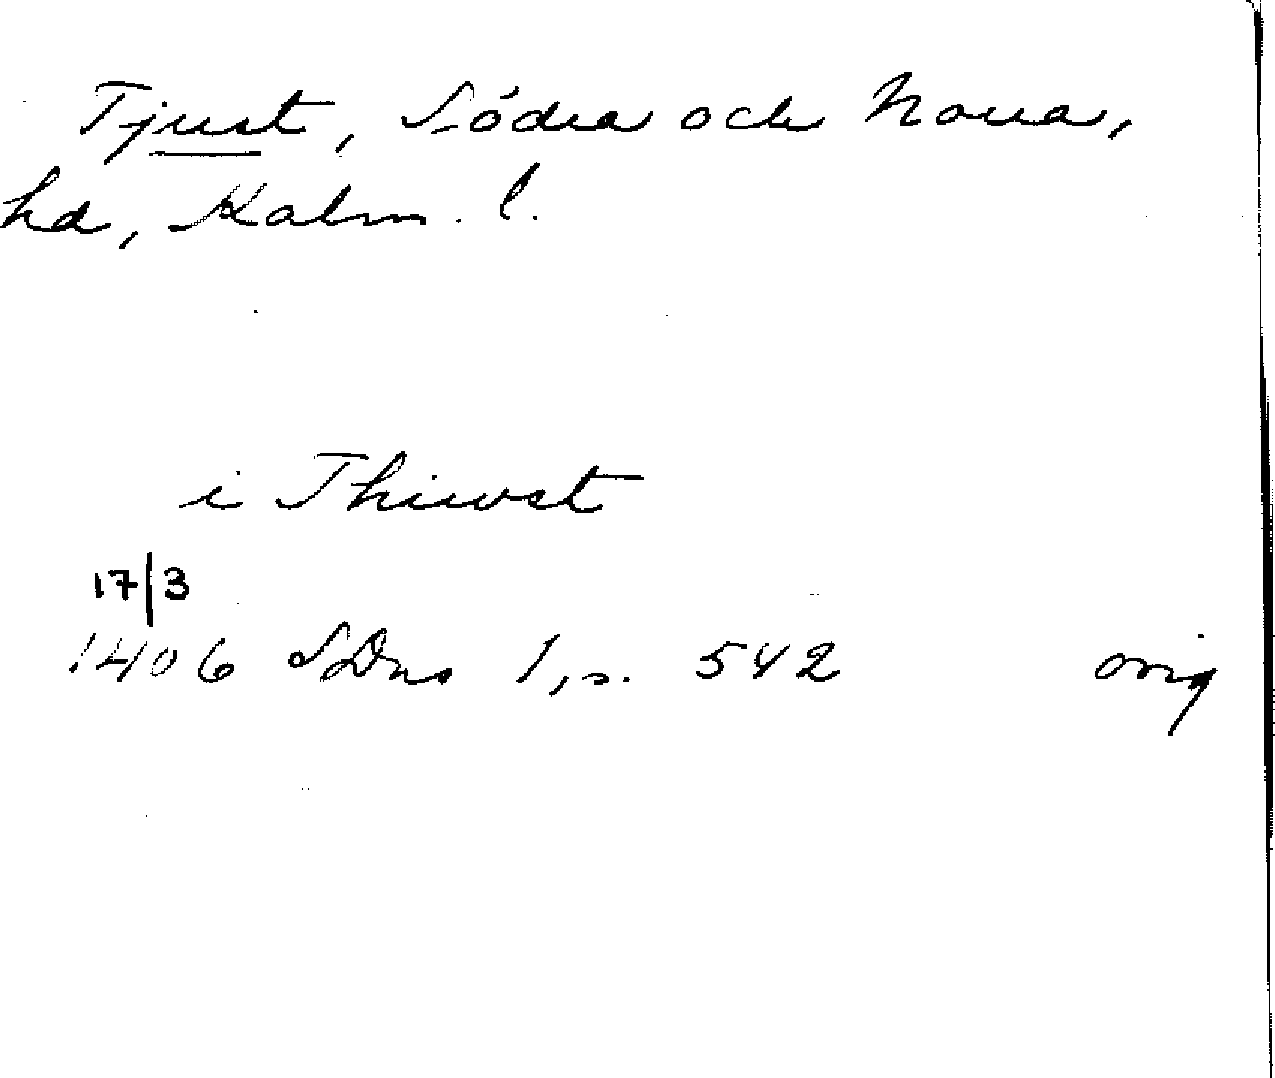 Tjust, Södra och Norra,
hd, Kalm. l.
i Thiwst
17/3
1406 SDns 1, s. 542 orig